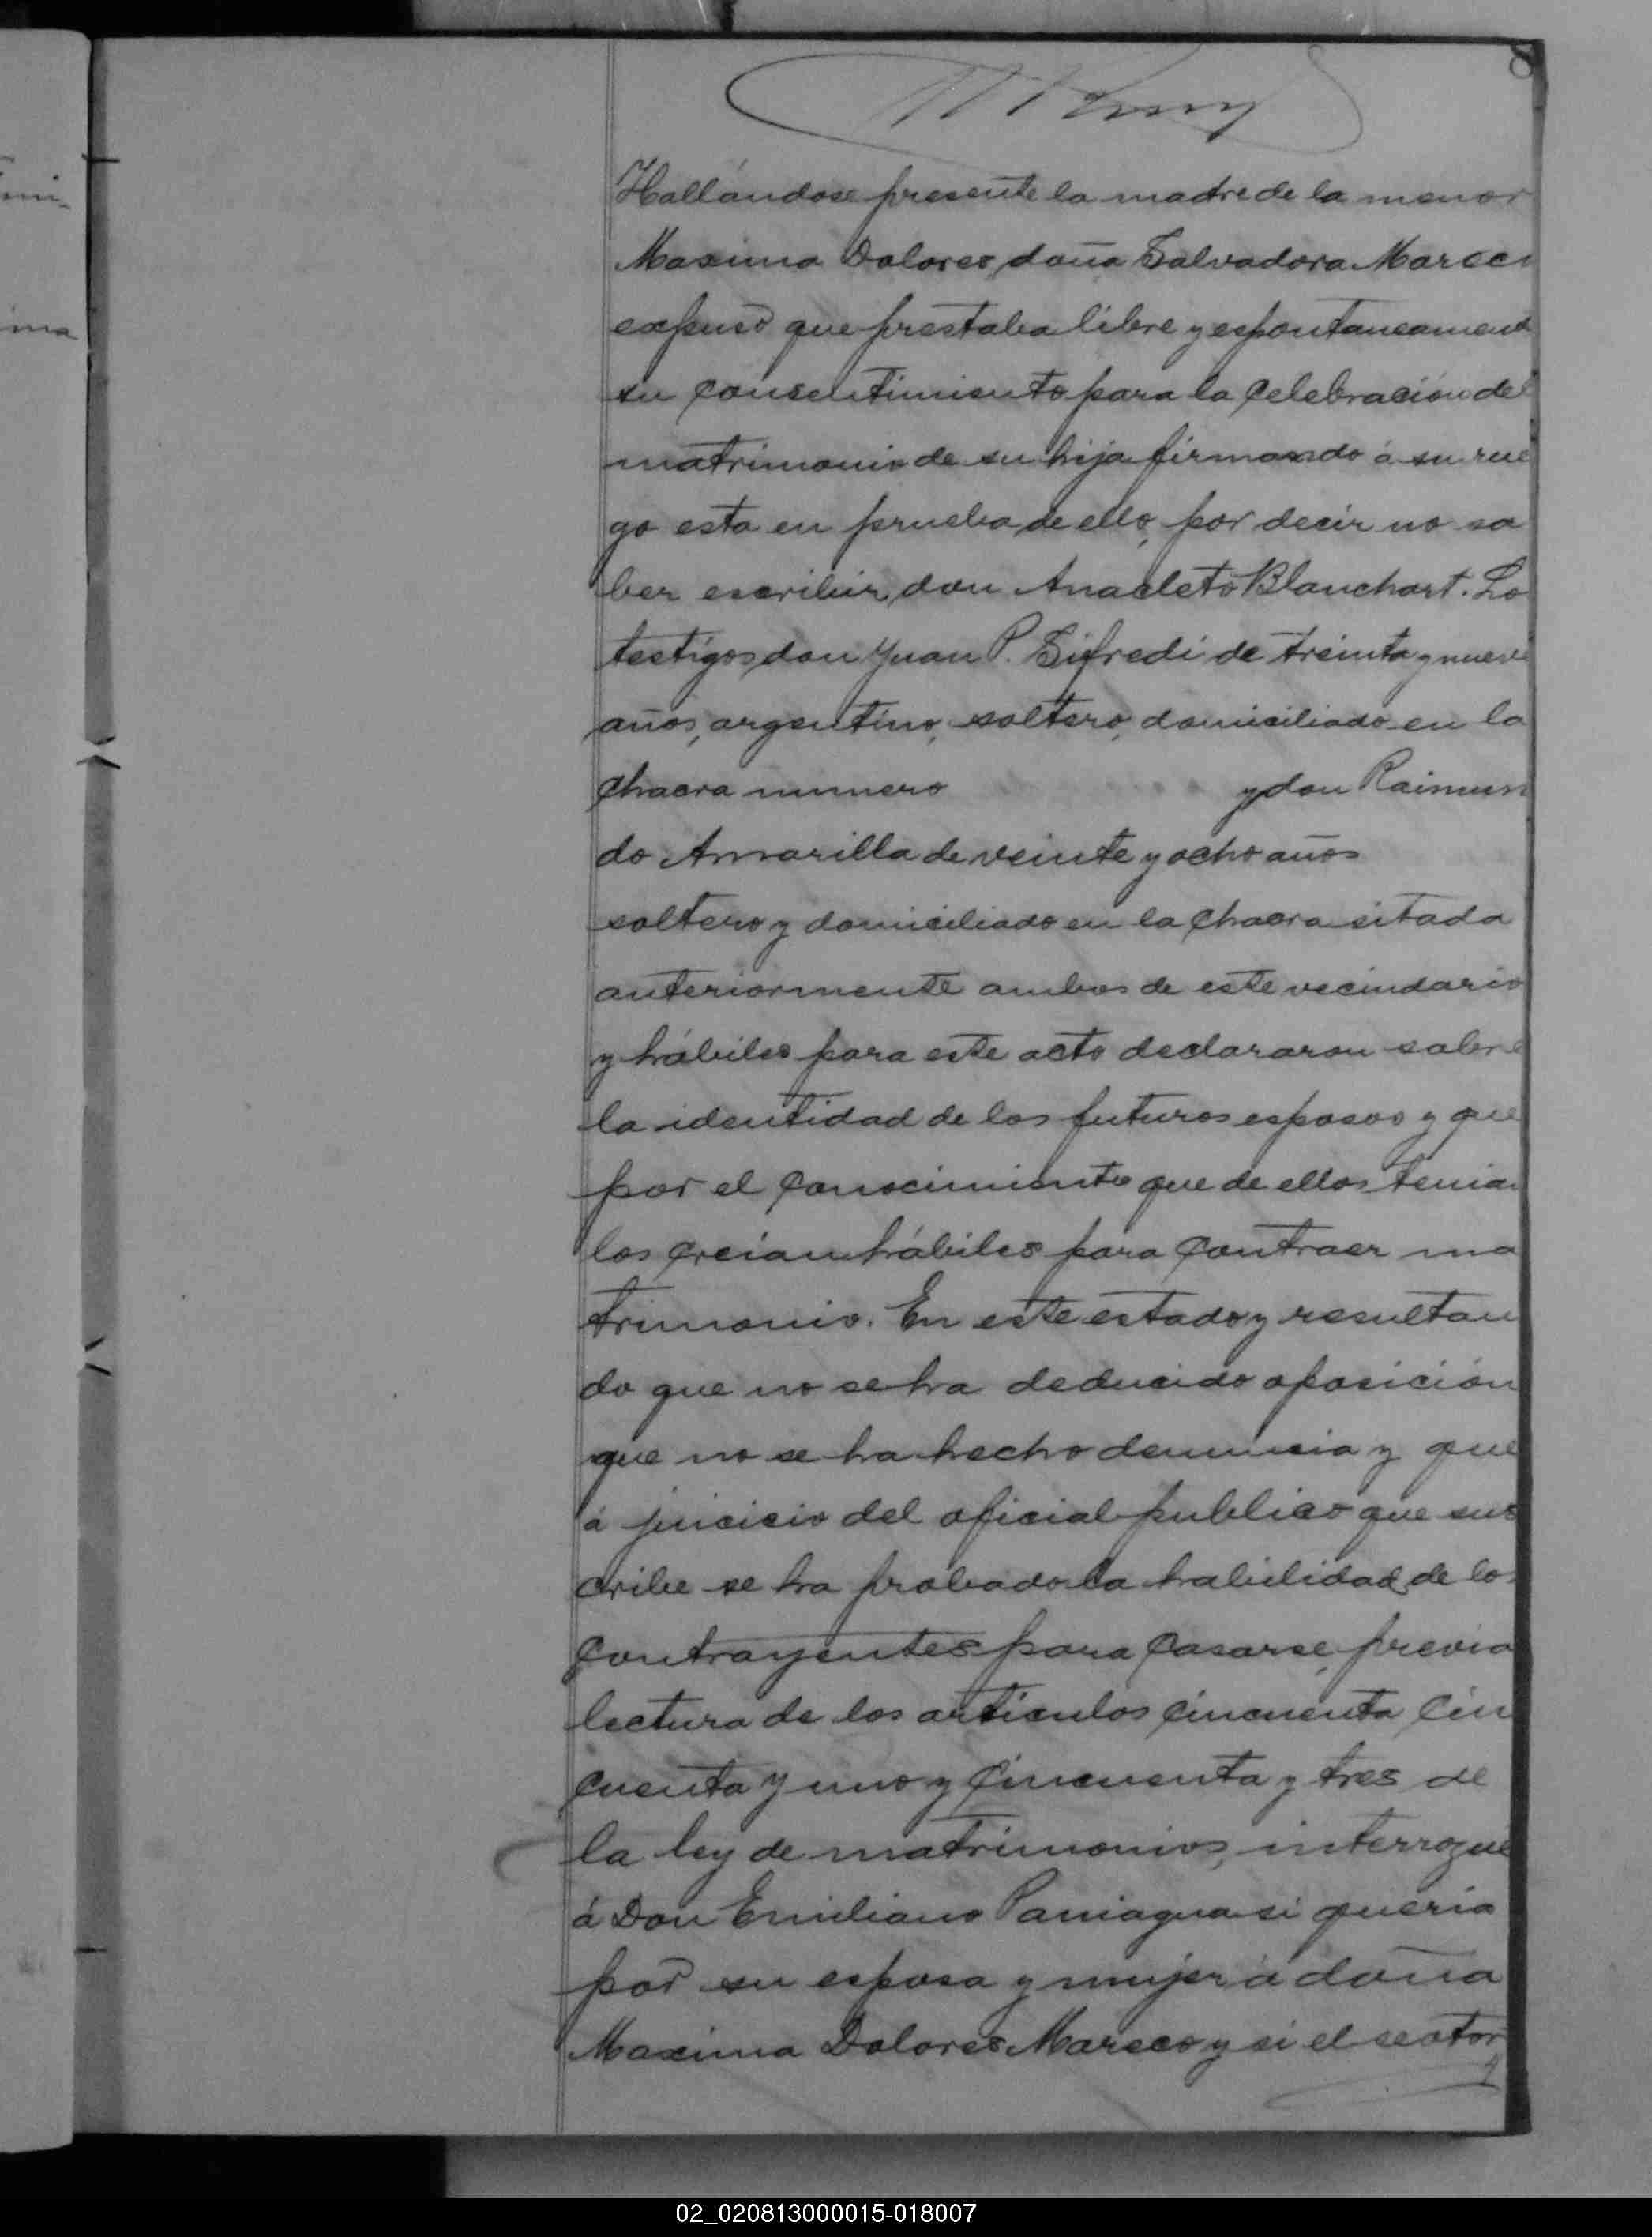 8
Hallándose presente la madre de la menor
Maxima Dolores, doña Salvadora Mareco
expuso que prestaba libre y espontaneament
su consentimiento para la celebración del
matrimonio de su hija firmando á su rue
go esta en prueba de ello, por decir no sa
ber escribir, don Anacleto Blanchart. Lo
testigos, don Juan P. Sifredi de treinta y nueve
años, argentino, soltero, domiciliado en la
chacra numero y don Raimun
do Amarilla de veinte y ocho años
soltero y domiciliado en la chacra citada
anteriormente ambos de este vecindario
y hábiles para este acto declararon sobre
la identidad de los futuros esposos y que
por el conocimiento que de ellos tenian
los creian hábiles para contraer ma
trimonio. En este estado y resultan
do que no se ha deducido oposición
que no se ha hecho denuncia y que
á juicicio del oficial publico que sus
cribe se ha probado la habilidad de los
contrayentes para casarse, previa
lectura de los articulos cincuenta, cin
cuenta y uno y cincuenta y tres de
la ley de matrimonios, interrogué
á Don Emiliano Paniagua si queria
por su esposa y mujer á doña
Maxima Dolores Mareco y si el
02_020813000015-018007